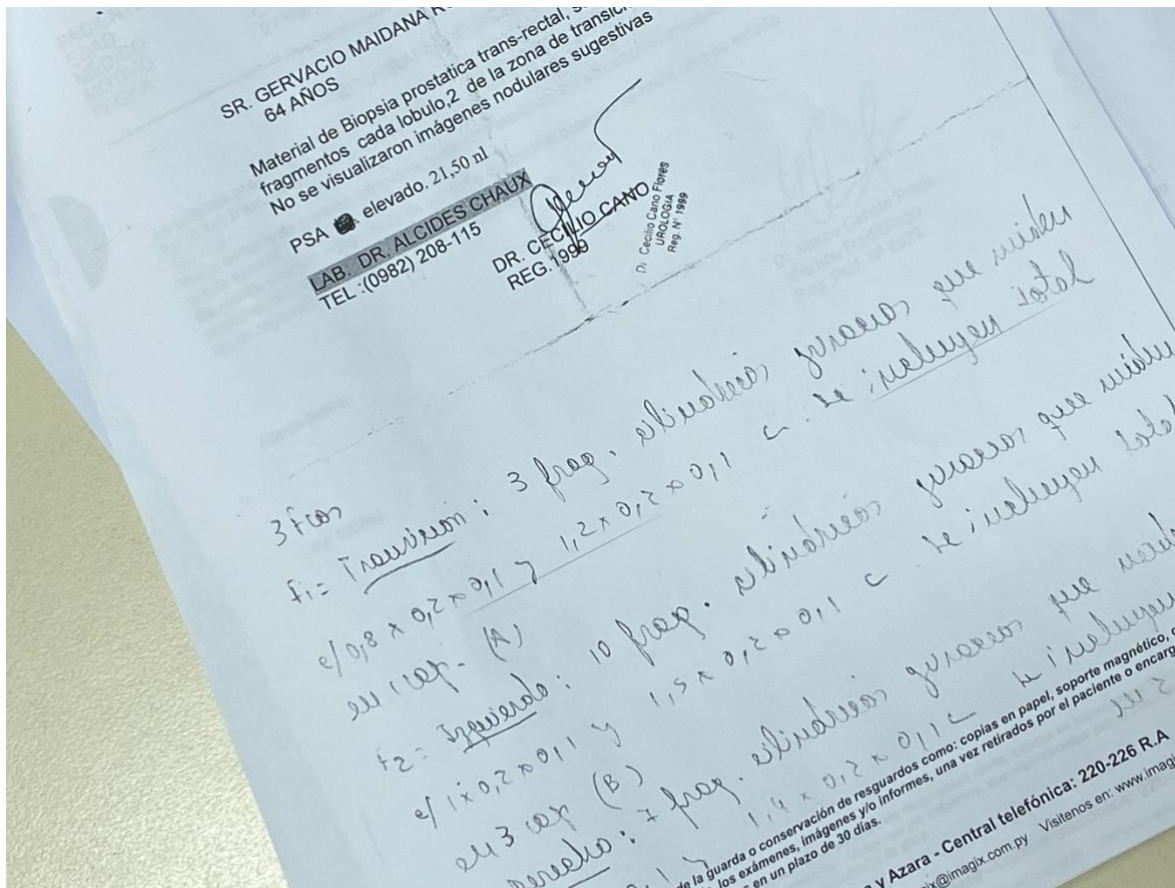 SR. GERVACIO MAIDANA
64 AÑOS
Material de Biopsia prostatica trans-rectal,
fragmentos cada lobulo,2 de la zona de transici
No se visualizaron imágenes nodulares sugestivas
PSA elevado. 21,50 nl
LAB. DR. ALCIDES CHAUX
TEL :(0982) 208-115
DR. CECILIO CANO
REG.1999
Dr. Cecilio Cano Flores
UROLOGIA
Reg. N° 1999
3 fcos
F1= Transicion: 3 frag. cilindricos grisaceos que miden
e/ 0,8 x 0,2 x 0,1 y 1,2 x 0,2 x 0,1 c se incluyen total
en 1 cap - (A)
F2= Izquierdo: 10 frag. cilindricos grisaceos que miden
e/ 1 x 0,2 x 0,1 y 1,5 x 0,2 x 0,1 c se incluyen total
en 3 cap (B)
Derecho: 7 frag. cilindricos grisaceos que
1,4 x 0,2 x 0,1 c se incluyen
de la guarda o conservación de resguardos como: copias en papel, soporte magnético,
los exámenes, imágenes y/o informes, una vez retirados por el paciente o encarg
en un plazo de 30 días.
y Azara - Central telefónica: 220-226 R.A
@imagix.com.py Visitenos en: www.imagi